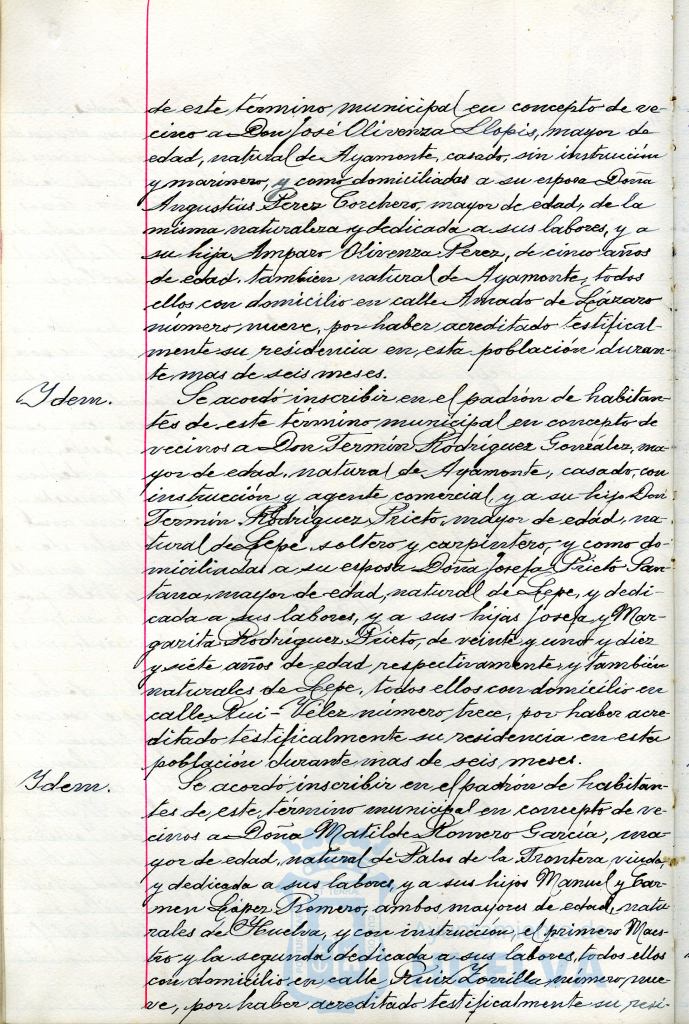 de este término municipal en concepto de ve-
cino a Don José Olivenza Llopis, mayor de
edad, natural de Ayamonte, casado, sin instrucción
y marinero, y como domiciliadas a su esposa Doña
Angustias Perez Corchero, mayor de edad, de la
misma naturaleza y dedicada a sus labores, y a
su hija Amparo Olivenza Perez, de cinco años
de edad, también natural de Ayamonte, todos
ellos con domicilio en calle Amado de Lázaro
número nueve, por haber acreditado testifical-
mente su residencia en esta población duran-
te mas de seis meses.
Idem. Se acordó inscribir en el padrón de habitan-
tes de este término municipal en concepto de
vecinos a Don Fermín Rodríguez González, ma-
yor de edad, natural de Ayamonte, casado, con
instrucción y agente comercial, y a su hijo Don
Fermín Rodríguez Prieto, mayor de edad, na-
tural de Lepe, soltero y carpintero, y como do-
miciliadas a su esposa Doña Josefa Prieto San-
tana, mayor de edad, natural de Lepe, y dedi-
cada a sus labores, y a sus hijas Josefa y Mar-
garita Rodríguez Prieto, de veinte y una y diez
y siete años de edad respectivamente, y también
naturales de Lepe, todos ellos con domicilio en
calle Rui-Vélez número trece, por haber acre-
ditado testificalmente su residencia en esta
población durante mas de seis meses.
Idem. Se acordó inscribir en el padrón de habitan-
tes de este término municipal en concepto de ve-
cinos a Doña Matilde Romero Garcia, ma-
yor de edad, natural de Palos de la Frontera, viuda,
y dedicada a sus labores, y a sus hijos Manuel y Car-
men López Romero, ambos mayores de edad, natu-
rales de Huelva, y con instrucción, el primero Maes-
tro y la segunda dedicada a sus labores, todos ellos
con domicilio en calle Ruiz Zorrilla número nue-
ve, por haber acreditado testificalmente su resi-